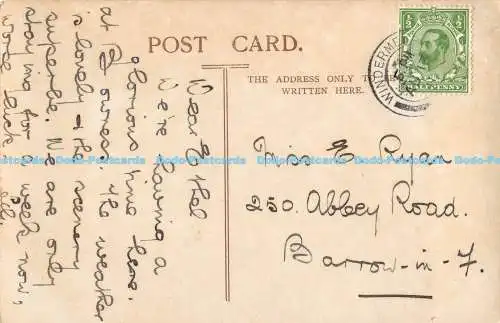 POST CARD.
THE ADDRESS ONLY TO BE
WRITTEN HERE.
HALFPENNY
WINDERMERE
Dear Ethel
We're having a
glorious time here,
at Bowness. the weather
is lovely & the scenery
superbe. We are only
staying for a week now,
worse luck
Miss E Ryan
250. Abbey Road.
Barrow-in-F.
Dodo-Postcards Dodo-Postcards Dodo-Postcards Dodo-Postcards